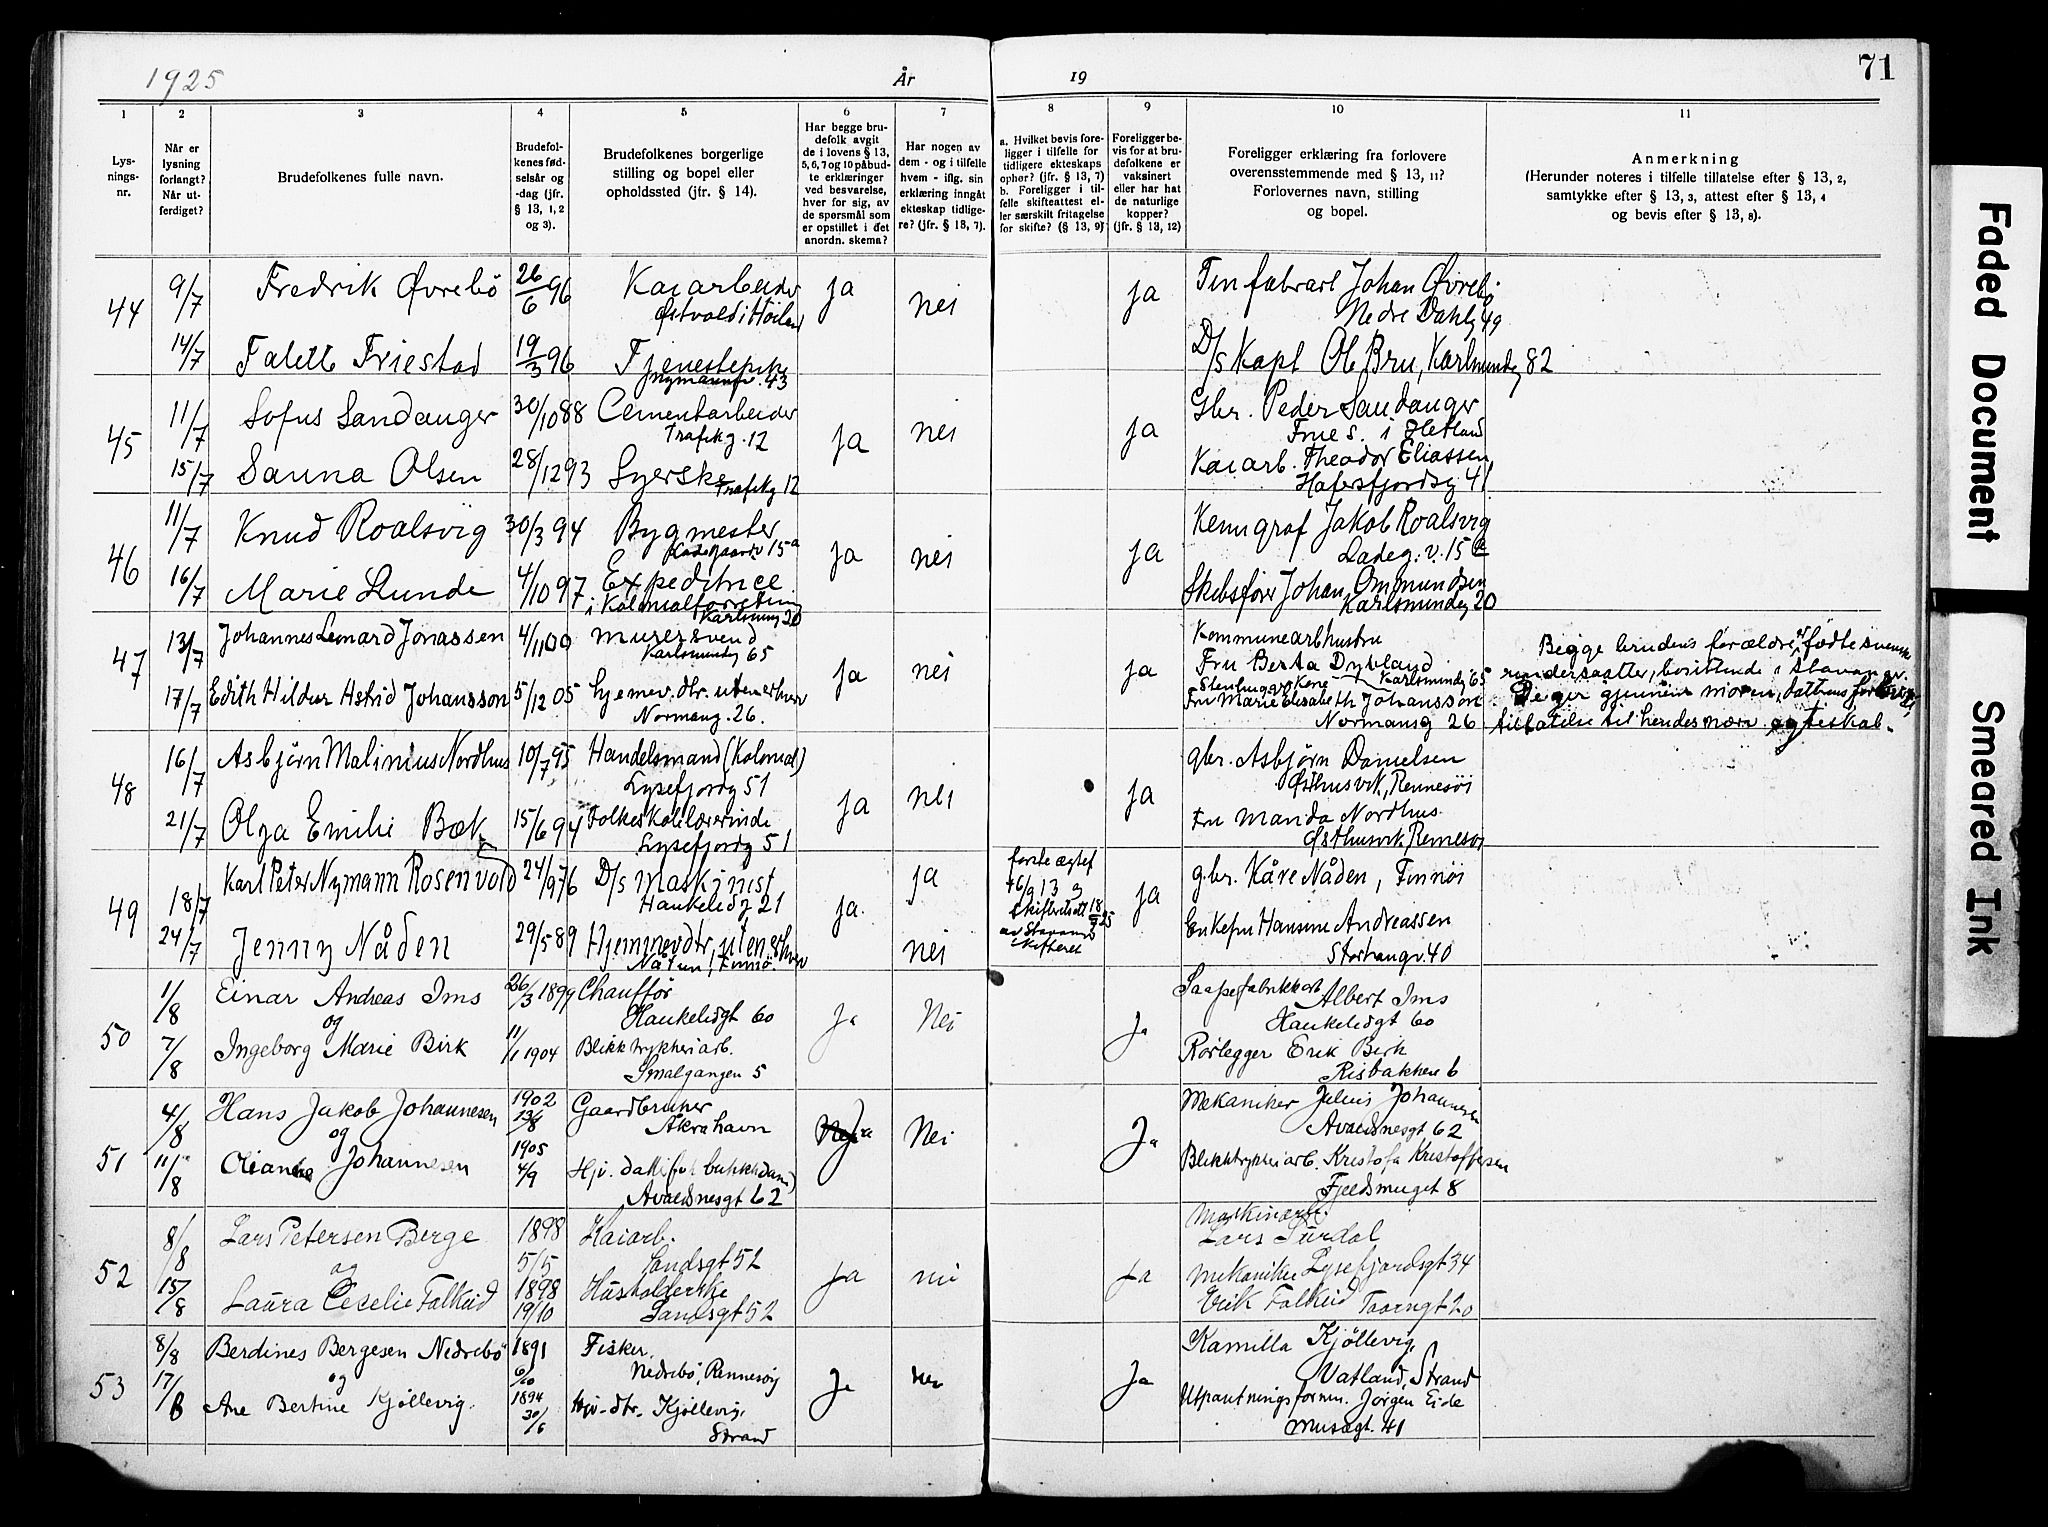 1925
År
19
71
1
2
3
4
5
6
7
8
9
10
11
Lys-
nings-
nr.
Når er
lysning
forlangt?
Når ut-
ferdiget?
Brudefolkenes fulle navn.
Brudefol-
kenes fød-
selsår og
-dag (jfr.
§ 13, 1, 2
og 3).
Brudefolkenes borgerlige
stilling og bopel eller
opholdssted (jfr. § 14).
Har begge bru-
defolk avgit
de i lovens § 13,
5, 6, 7 og 10 påbud-
te erklæringer
ved besvarelse,
hver for sig, av
de spørsmål som
er opstillet i det
anordn. skema?
Har nogen av
dem - og i tilfelle
hvem - iflg. sin
erklæring inngåt
ekteskap tidlige-
re? (jfr. § 13, 7).
a. Hvilket bevis fore-
ligger i tilfelle for
tidligere ekteskaps
ophør? (jfr. § 13, 7)
b. Foreligger i til-
felle skifteattest el-
ler særskilt fritagelse
for skifte? (§ 13, 9)
Foreligger be-
vis for at bru-
defolkene er
vaksinert
eller har hat
de naturlige
kopper?
(jfr. § 13, 12)
Foreligger erklæring fra forlovere
overensstemmende med § 13, 11?
Forlovernes navn, stilling
og bopel.
Anmerkning
(Herunder noteres i tilfelle tillatelse efter § 13, 2,
samtykke efter § 13, 3, attest efter § 13, 4
og bevis efter § 13, 8).
44
9/7
Fredrik Øvrebö
26/6 96
Kaiarbeider
ja
nei
ja
Johan Øvrebö
14/7
Friestad
19/3 96
Tjenestepike
Nymannsv. 43
D/s Kapt Ol Bru, Karlmundsg 82
45
11/7
Sofus Sandanger
30/10 88
Cementarbeider
Trafikg. 12
ja
nei
ja
Gbr. Peder Sandanger
i Hetland
15/7
Sanna Olsen
28/12 93
Syerske
Trafikg 12
Kaiarb. Theodor Eliassen
Hafersfjordsg 41
46
11/7
Knud Roalsvig
30/3 94
Bygmester
Ladegaardsv 15a
ja
nei
ja
Jakob Roalsvig
Ladeg. v. 15a
16/7
Marie Lunde
4/10 97
Expeditrice
i Kolonialforretning
Karlsmindeg 20
Skibsfører Johan Ommundsen
Karlsmindeg 20
47
13/7
Johannes Leonard Jonassen
4/11 00
Murersvend
Karlsmindeg 65
ja
nei
ja
Kommunearbhustru
Fru Berta Dybland
Karlsmindeg 65
17/7
Edith Hildur Astrid Johansson
5/12 05
Hjemev. dtr. uten erhverv
Normansg. 26.
Fru Marie Elisabeth Johansson
Normansg 26
Begge brudens forældre er fødte svenske
undersaatter, bosittende i Stavanger.
De gir gjennem moren, datteren
tillatelse til hendes ægteskab.
48
16/7
Asbjörn Malinius Nordhus
10/7 95
Handelsmand (Kolonial)
Lysefjordg 51
ja
nei
ja
gbr. Asbjörn Danielsen
Østhusvik, Rennesöi
21/7
Olga Emilie Bæk
15/6 94
Folkeskolelærerinde
Lysefjordg 51
Fru Manda Nordhus
Østhusvik, Rennesöi
49
18/7
Karl Peter Nymann Rosenvold
24/9 76
D/s Maskinist
Haukelidg 21
ja.
ja
første ægtef
† 6/9 13 og
skifteatt 18/7 25
av Stavanger
skifteret
ja
gbr. Kåre Nåden, Finnöi
24/7
Jenny Nåden
29/5 89
Hjemmev dtr, uten erhverv
Nåden, Finnö.
nei
Enkefru Hansine Andreassen
Storhaugv. 40
50
1/8
Einar Andreas Ims
og
26/3 1899
Chaufför
Haukelidgt 60
ja
Nei
Ja
Saapefabrikkarb Albert Ims
Haukelidgt 60
7/8
Ingeborg Marie Birk
11/1 1904
Blikktrykkeriarb.
Smalgangen 5
Rörlegger Erik Birk
Risbakken 6
51
4/8
Hans Jakob Johannesen
og
1902
13/8
Gaardbruker
Åkrahavn
Ja
Nei
Ja
Mekaniker Julius Johannesen
Avaldsnesgt 62
11/8
Johannesen
1905
4/9
Hjv. datter (før butikkdame)
Avaldsnesgt 62
Blikktrykkeriarb. Kristofa Kristoffersen
Fjeldsmuget 8
52
8/8
Lars Petersen Berge
og
1898
5/5
Kaiarb.
Sandsgt 52
Ja
nei
Ja
Maskinarb.
Lars Surdal
Lysefjordsgt 34
15/8
Laura Cecelie Falkeid
1898
19/10
Husholderske
Sandsgt 52
Mekaniker
Erik Falkeid Taarngt 20
53
8/8
Berdines Bergesen Nedrebö
og
1891
6/10
Fisker,
Nedrebö, Rennesöy
Ja
nei
Ja
Kamilla Kjöllevig,
Vatland, Strand
17/8
Ane Bertine Kjöllevig.
1894
30/6
Hjv-dtr. Kjöllevig,
Strand
Utpantningsformn. Jörgen Eide
Musegt. 41
Faded Document
Smeared Ink